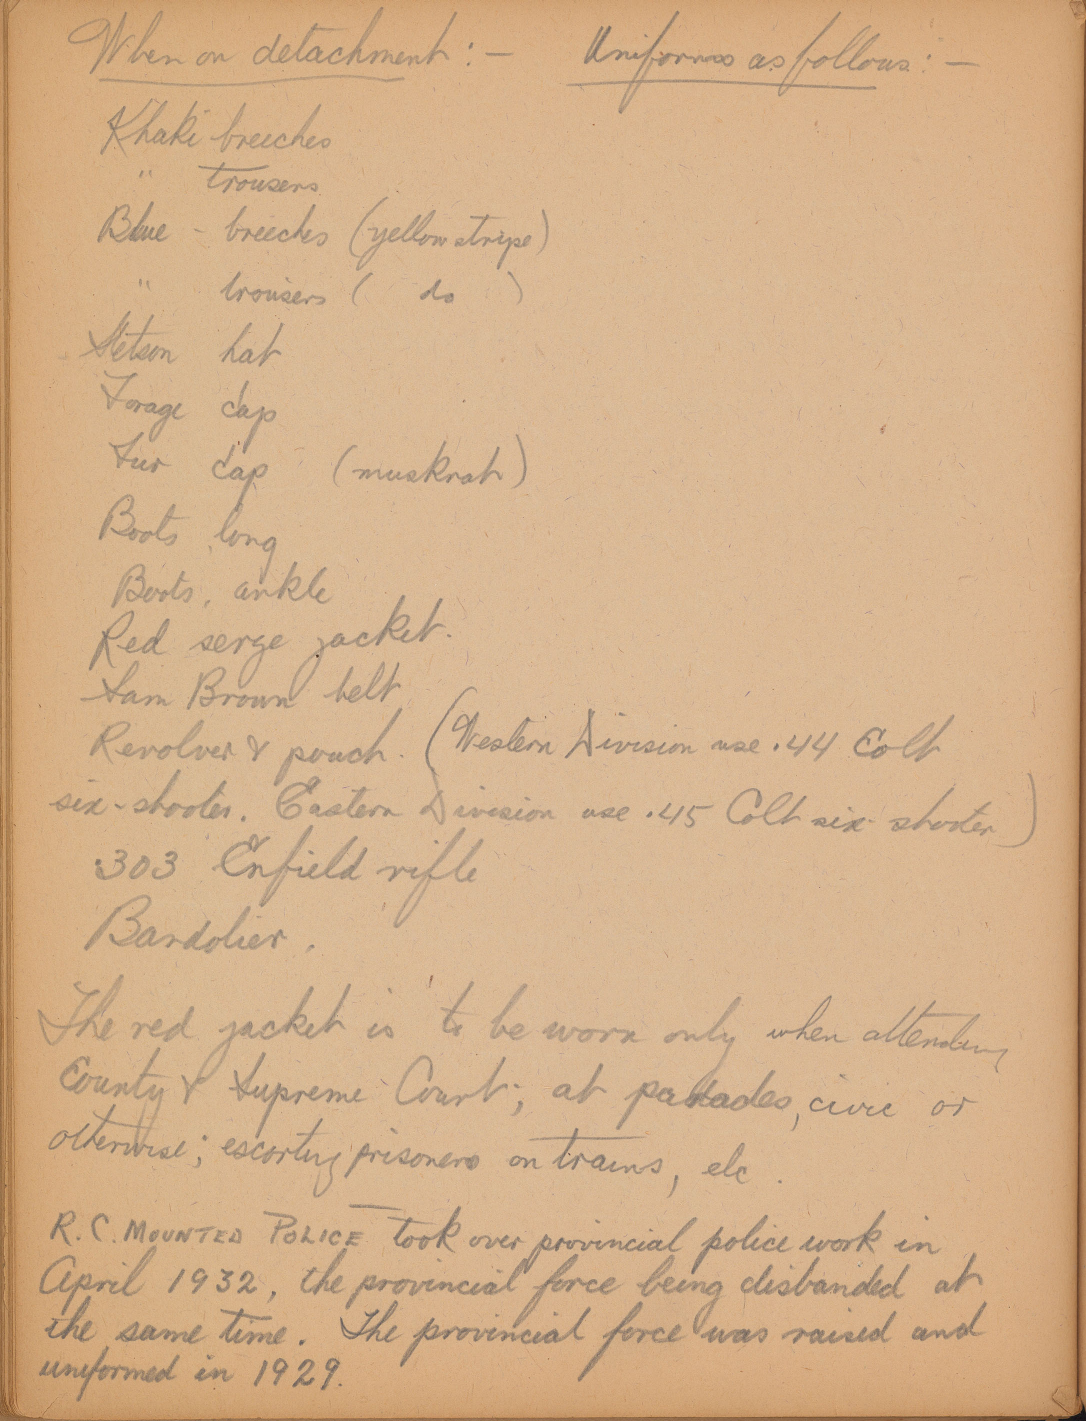 When on detachment :— Uniforms as follows :—
Khaki breeches
" trousers
Blue - breeches (yellow stripe)
" trousers ( do )
Stetson hat
Forage cap
Fur cap (muskrat)
Boots long
Boots, ankle
Red serge jacket.
Sam Brown belt
Revolver & pouch. (Western Division use .44 Colt
six-shooter. Eastern Division use .45 Colt six-shooter)
.303 Enfield rifle
Bandolier.
The red jacket is to be worn only when attending
County & Supreme Court; at parades, civic or
otherwise; escorting prisoners on trains, etc.
R.C. MOUNTED POLICE took over provincial police work in
April 1932, the provincial force being disbanded at
the same time. The provincial force was raised and
uniformed in 1929.